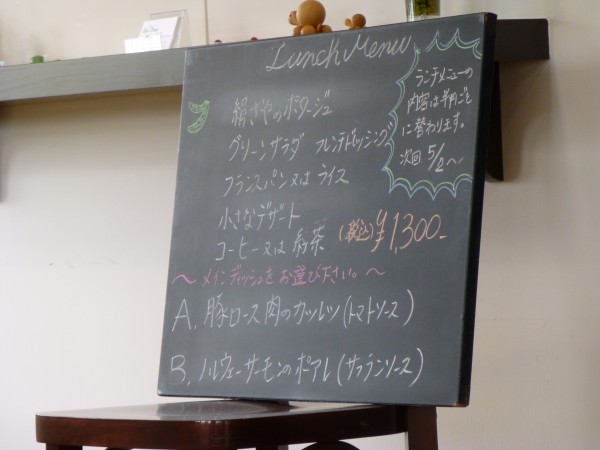 Lunch Menu
絹さやのポタージュ
グリーンサラダ フレンチドレッシング
フランスパン又は ライス
小さなデザート
コーヒー又は 紅茶
(税込)¥1,300-
ランチメニューの
内容は半月ごと
に替わります。
次回 5/2〜
〜メインディッシュをお選び下さい。〜
A. 豚ロース肉のカツレツ(トマトソース)
B. ノルウェーサーモンのポアレ(サフランソース)